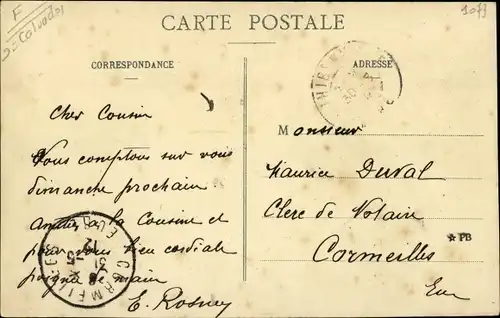 F
Calvados
1073
CARTE POSTALE
CORRESPONDANCE
ADRESSE
Cher Cousin
Vous comptons sur vous
dimanche prochain
la Cousine et
pour vous bien cordiale
poignée de main
E. Rosney
Monsieur
Maurice Duval
Clerc de Notaire
Cormeilles
Eure
★ PB
CORMEILLES
EURE